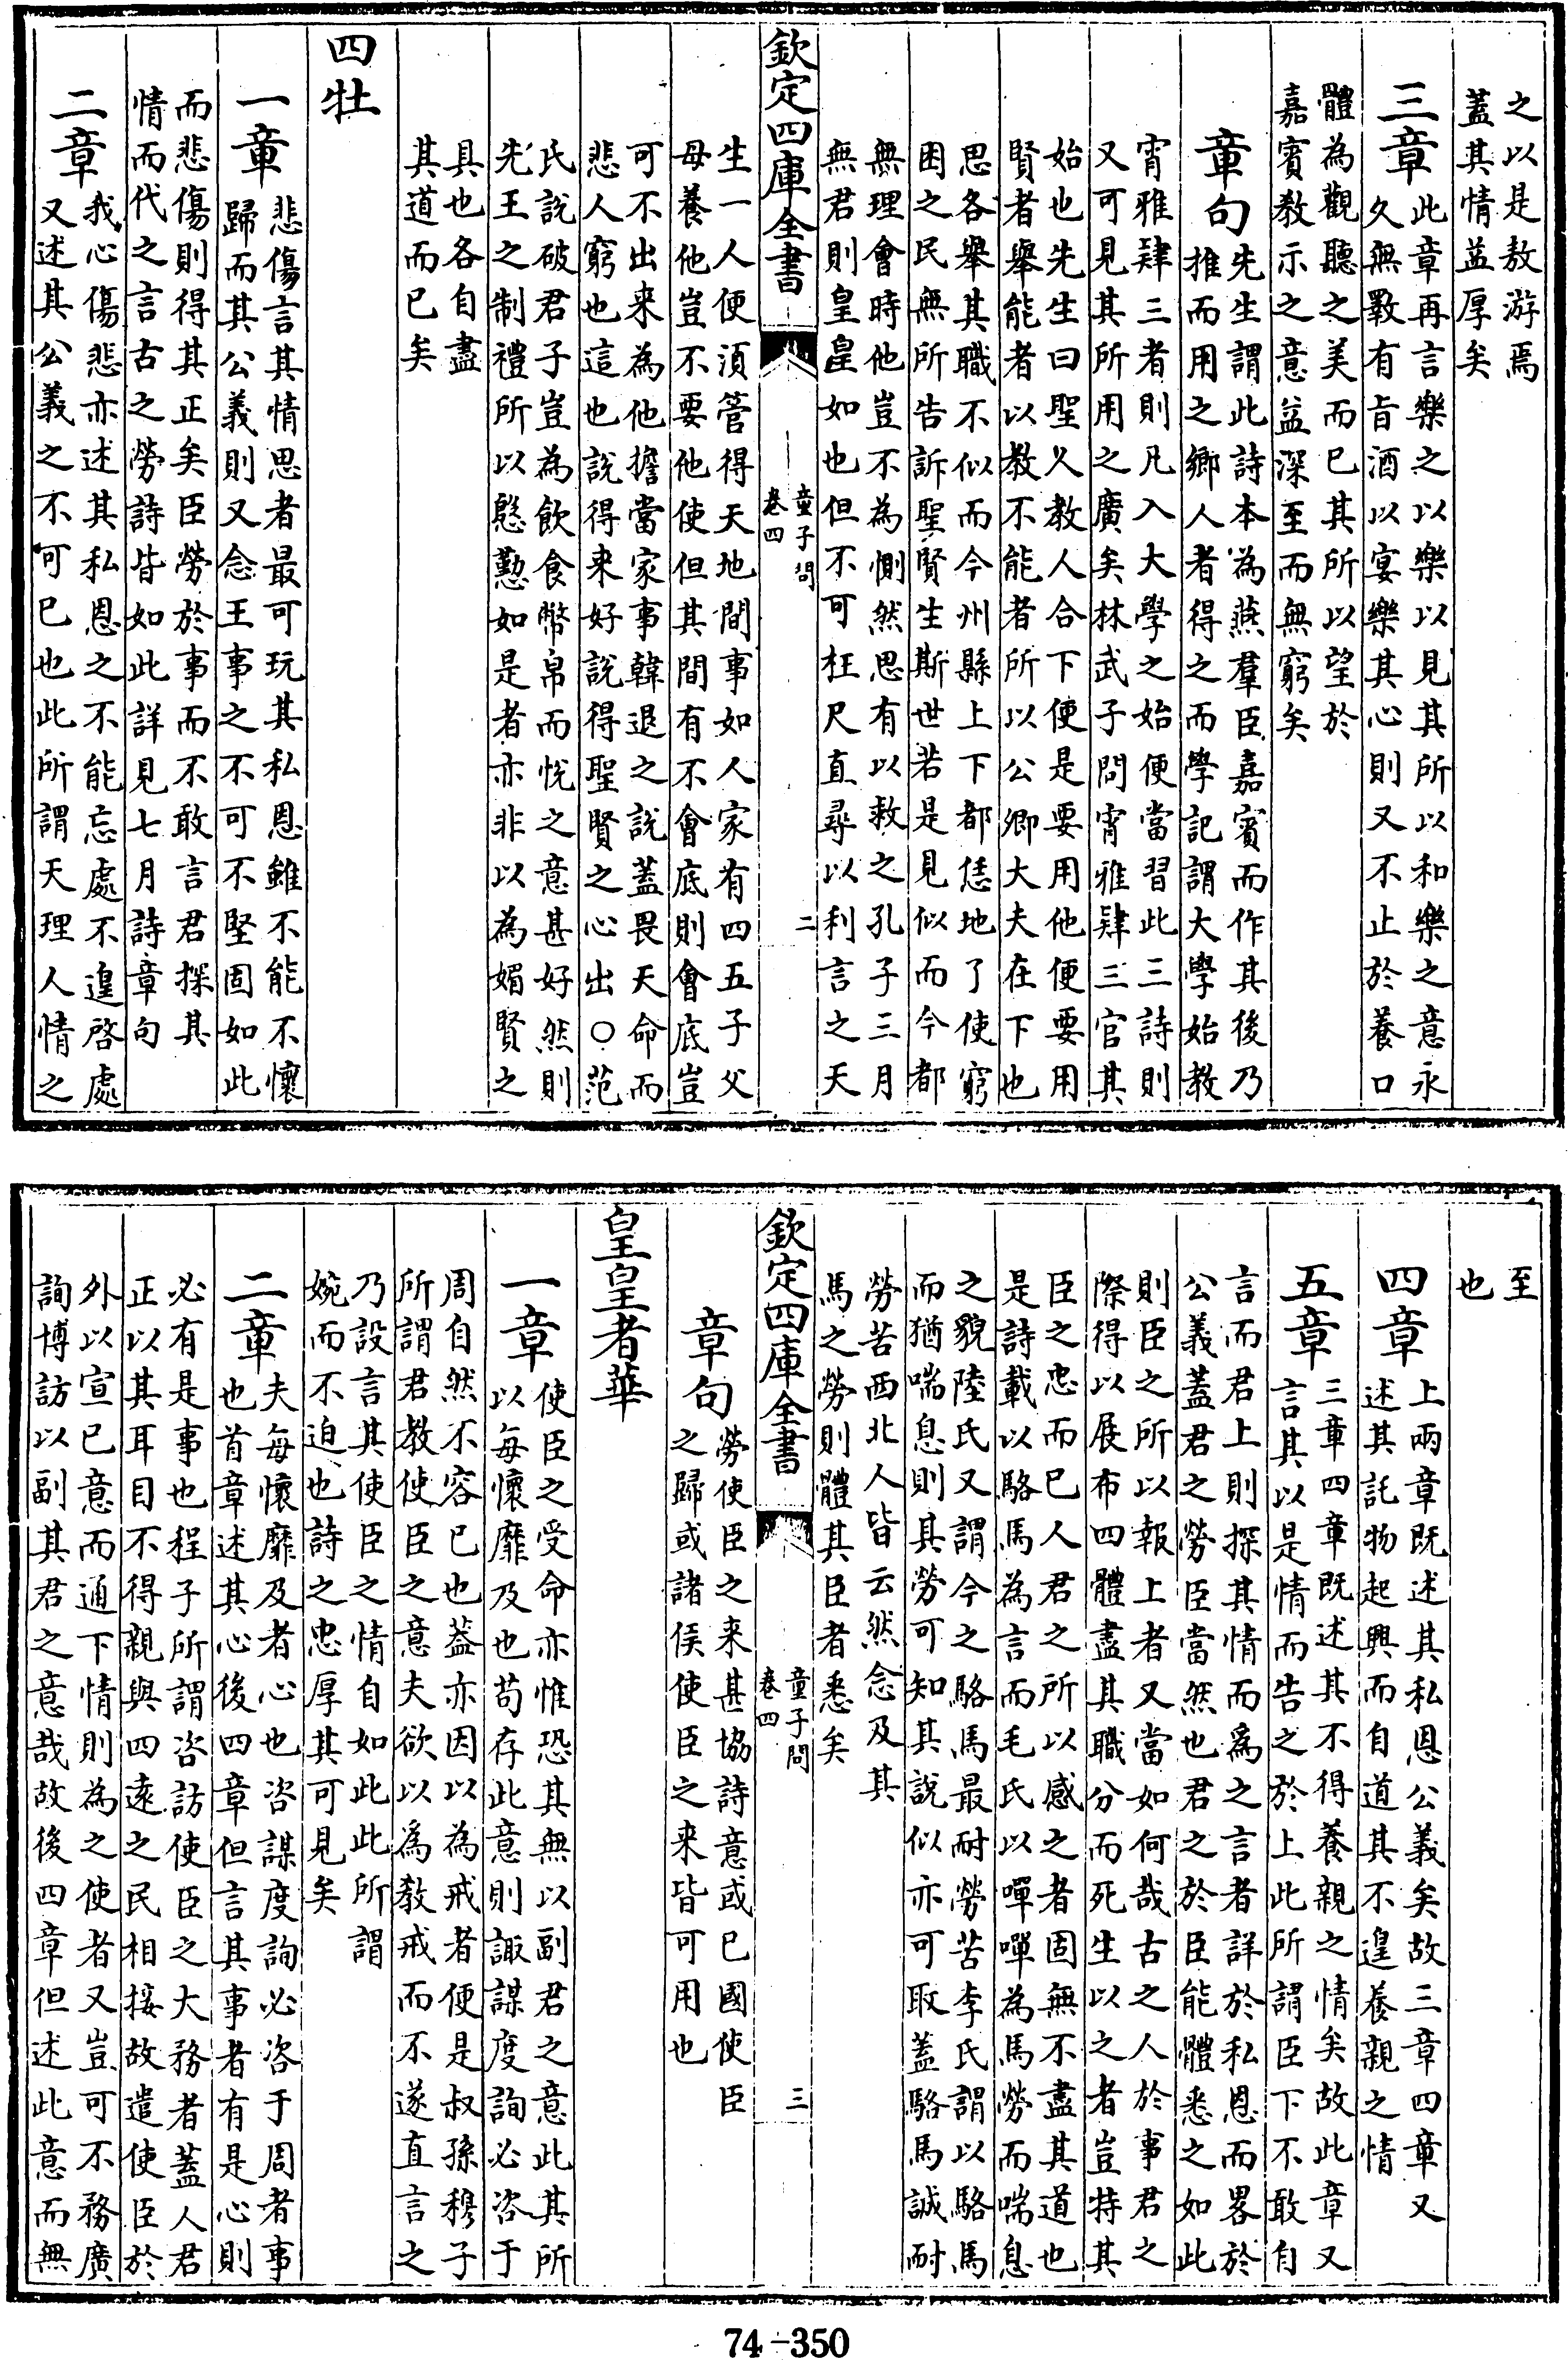 之以是敖游焉
蓋其情益厚矣
三章
此章再言樂之以樂以見其所以和樂之意永
久無斁有旨酒以宴樂其心則又不止於養口
體為觀聽之美而已其所以望於
嘉賓教示之意益深至而無窮矣
章句
先生謂此詩本為燕羣臣嘉賓而作其後乃
推而用之鄉人者得之而學記謂大學始教
宵雅肄三者則凡入大學之始便當習此三詩則
又可見其所用之廣矣林武子問宵雅肄三官其
始也先生曰聖人教人合下便是要用他便要用
賢者舉能者以教不能者所以公卿大夫在下也
思各舉其職不似而今州縣上下都恁地了使窮
困之民無所告訴聖賢生斯世若是見似而今都
無理會時他豈不為惻然思有以救之孔子三月
無君則皇皇如也但不可枉尺直尋以利言之天
欽定四庫全書
童子問
卷四
二
生一人便須管得天地間事如人家有四五子父
母養他豈不要他使但其間有不會底則會底豈
可不出来為他擔當家事韓退之說蓋畏天命而
悲人窮也這也說得来好說得聖賢之心出○范
氏說破君子豈為飲食幣帛而悅之意甚好然則
先王之制禮所以慇懃如是者亦非以為媚賢之
具也各自盡
其道而已矣
四牡
一章
悲傷言其情思者最可玩其私恩雖不能不懷
歸而其公義則又念王事之不可不堅固如此
而悲傷則得其正矣臣勞於事而不敢言君探其
情而代之言古之勞詩皆如此詳見七月詩章句
二章
我心傷悲亦述其私恩之不能忘處不遑啓處
又述其公義之不可已也此所謂天理人情之
至
也
四章
上兩章既述其私恩公義矣故三章四章又
述其託物起興而自道其不遑養親之情
五章
三章四章既述其不得養親之情矣故此章又
言其以是情而告之於上此所謂臣下不敢自
言而君上則探其情而為之言者詳於私恩而畧於
公義蓋君之勞臣當然也君之於臣能體悉之如此
則臣之所以報上者又當如何哉古之人於事君之
際得以展布四體盡其職分而死生以之者豈特其
臣之忠而已人君之所以感之者固無不盡其道也
是詩載以駱馬為言而毛氏以嘽嘽為馬勞而喘息
之貌陸氏又謂今之駱馬最耐勞苦李氏謂以駱馬
而猶喘息則其勞可知其說似亦可取蓋駱馬誠耐
勞苦西北人皆云然念及其
馬之勞則體其臣者悉矣
欽定四庫全書
童子問
卷四
三
章句
勞使臣之来甚協詩意或已國使臣
之歸或諸侯使臣之来皆可用也
皇皇者華
一章
使臣之受命亦惟恐其無以副君之意此其所
以每懷靡及也苟存此意則諏謀度詢必咨于
周自然不容已也蓋亦因以為戒者便是叔孫穆子
所謂君教使臣之意夫欲以為教戒而不遂直言之
乃設言其使臣之情自如此此所謂
婉而不迫也詩之忠厚其可見矣
二章
夫每懷靡及者心也咨謀度詢必咨于周者事
也首章述其心後四章但言其事者有是心則
必有是事也程子所謂咨訪使臣之大務者蓋人君
正以其耳目不得親與四遠之民相接故遣使臣於
外以宣已意而通下情則為之使者又豈可不務廣
詢博訪以副其君之意哉故後四章但述此意而無
74-350